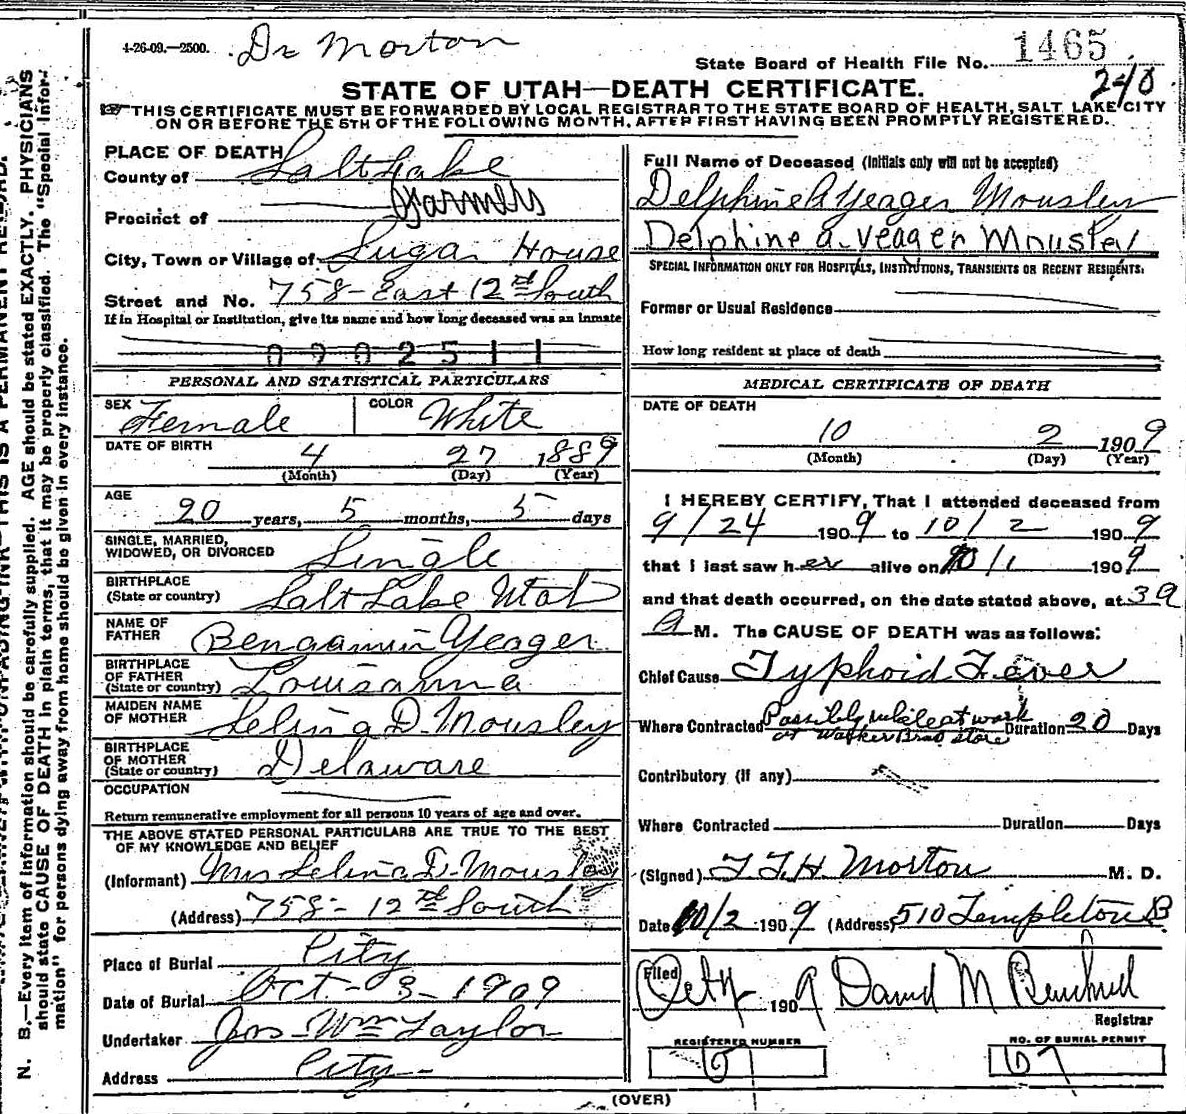 4-26-09.—2500. Dr Morton
State Board of Health File No. 1465
240
STATE OF UTAH—DEATH CERTIFICATE.
THIS CERTIFICATE MUST BE FORWARDED BY LOCAL REGISTRAR TO THE STATE BOARD OF HEALTH, SALT LAKE CITY
ON OR BEFORE THE 5TH OF THE FOLLOWING MONTH, AFTER FIRST HAVING BEEN PROMPTLY REGISTERED.
N. B.—Every item of information should be carefully supplied. AGE should be stated EXACTLY. PHYSICIANS
should state CAUSE OF DEATH in plain terms, that it may be properly classified. The "Special Infor-
mation" for persons dying away from home should be given in every instance.
PLACE OF DEATH
County of Salt Lake
Farmers
Precinct of
City, Town or Village of Sugar House
Street and No. 758- East 12th South
If in Hospital or Institution, give its name and how long deceased was an inmate
0902511
PERSONAL AND STATISTICAL PARTICULARS
SEX Female COLOR White
DATE OF BIRTH 4 27 1889
(Month) (Day) (Year)
AGE
20 years, 5 months, 5 days
SINGLE, MARRIED,
WIDOWED, OR DIVORCED Single
BIRTHPLACE
(State or country) Salt Lake Utah
NAME OF
FATHER Bengamin Yeager
BIRTHPLACE
OF FATHER
(State or country) Louisanna
MAIDEN NAME
OF MOTHER Selina D. Mousley
BIRTHPLACE
OF MOTHER
(State or country) Delaware
OCCUPATION
Return remunerative employment for all persons 10 years of age and over.
THE ABOVE STATED PERSONAL PARTICULARS ARE TRUE TO THE BEST
OF MY KNOWLEDGE AND BELIEF
(Informant) Mrs Selina D. Mousley
(Address) 758- 12th South
Place of Burial City
Date of Burial Oct - 3 - 1909
Undertaker Jos- Wm Taylor
Address City-
Full Name of Deceased (Initials only will not be accepted)
Delphine A Yeager Mousley
Delphine a. Yeager Mousley
SPECIAL INFORMATION ONLY FOR HOSPITALS, INSTITUTIONS, TRANSIENTS OR RECENT RESIDENTS.
Former or Usual Residence
How long resident at place of death
MEDICAL CERTIFICATE OF DEATH
DATE OF DEATH
10 2 1909
(Month) (Day) (Year)
I HEREBY CERTIFY, That I attended deceased from
9/24 1909 to 10/2 1909
that I last saw her alive on 10/1 1909
and that death occurred, on the date stated above, at
A M. The CAUSE OF DEATH was as follows:
Chief Cause Typhoid Fever
Where Contracted Possibly while at work Duration 20 Days
at Walker Bros store
Contributory (if any)
Where Contracted Duration Days
(Signed) T. F. H. Morton M. D.
Date 10/2 1909 (Address) 510 Templeton B
Filed 1909 David M
Registrar
REGISTERED NUMBER NO. OF BURIAL PERMIT
67 67
(OVER)